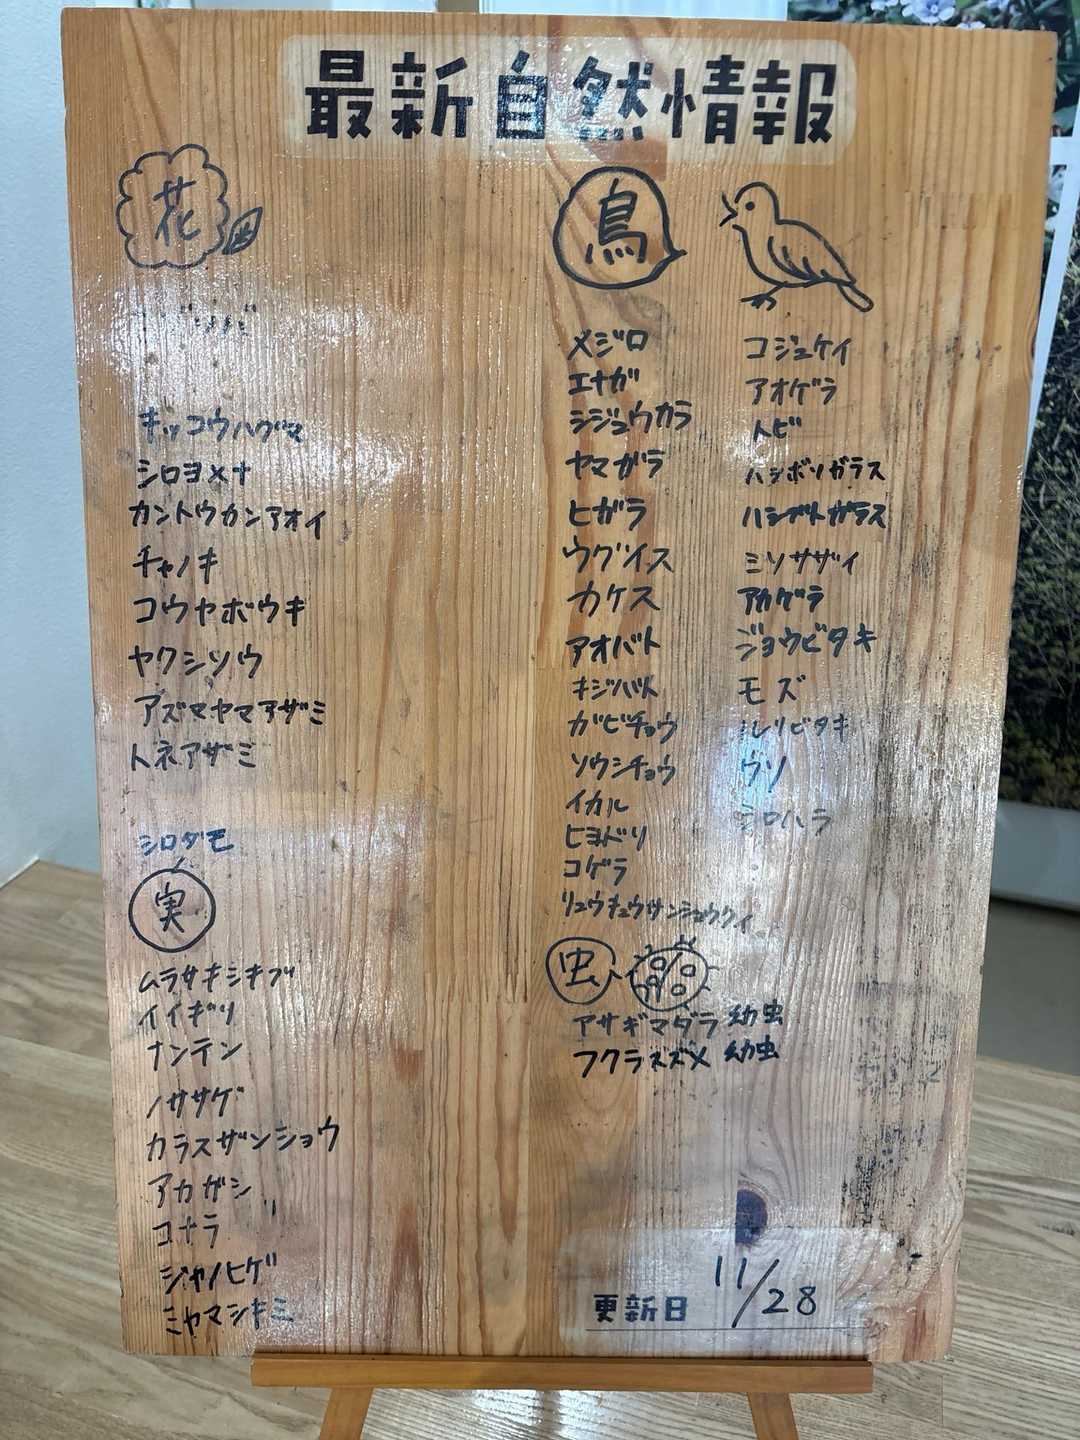 最新自然情報
花
キッコウハグマ
シロヨメナ
カントウカンアオイ
チャノキ
コウヤボウキ
ヤクシソウ
アズマヤマアザミ
トネアザミ
シロダモ
実
ムラサキシキブ
イイギリ
ナンテン
ノササゲ
カラスザンショウ
アカガシ
コナラ
ジャノヒゲ
ミヤマシキミ
鳥
メジロ
エナガ
シジュウカラ
ヤマガラ
ヒガラ
ウグイス
カケス
アオバト
キジバト
ガビチョウ
ソウシチョウ
イカル
ヒヨドリ
コゲラ
リュウキュウサンショウクイ
コジュケイ
アオゲラ
トビ
ハシボソガラス
ハシブトガラス
ミソサザイ
アカゲラ
ジョウビタキ
モズ
ルリビタキ
ウソ
シロハラ
虫
アサギマダラ 幼虫
フクラスズメ 幼虫
更新日 11/28